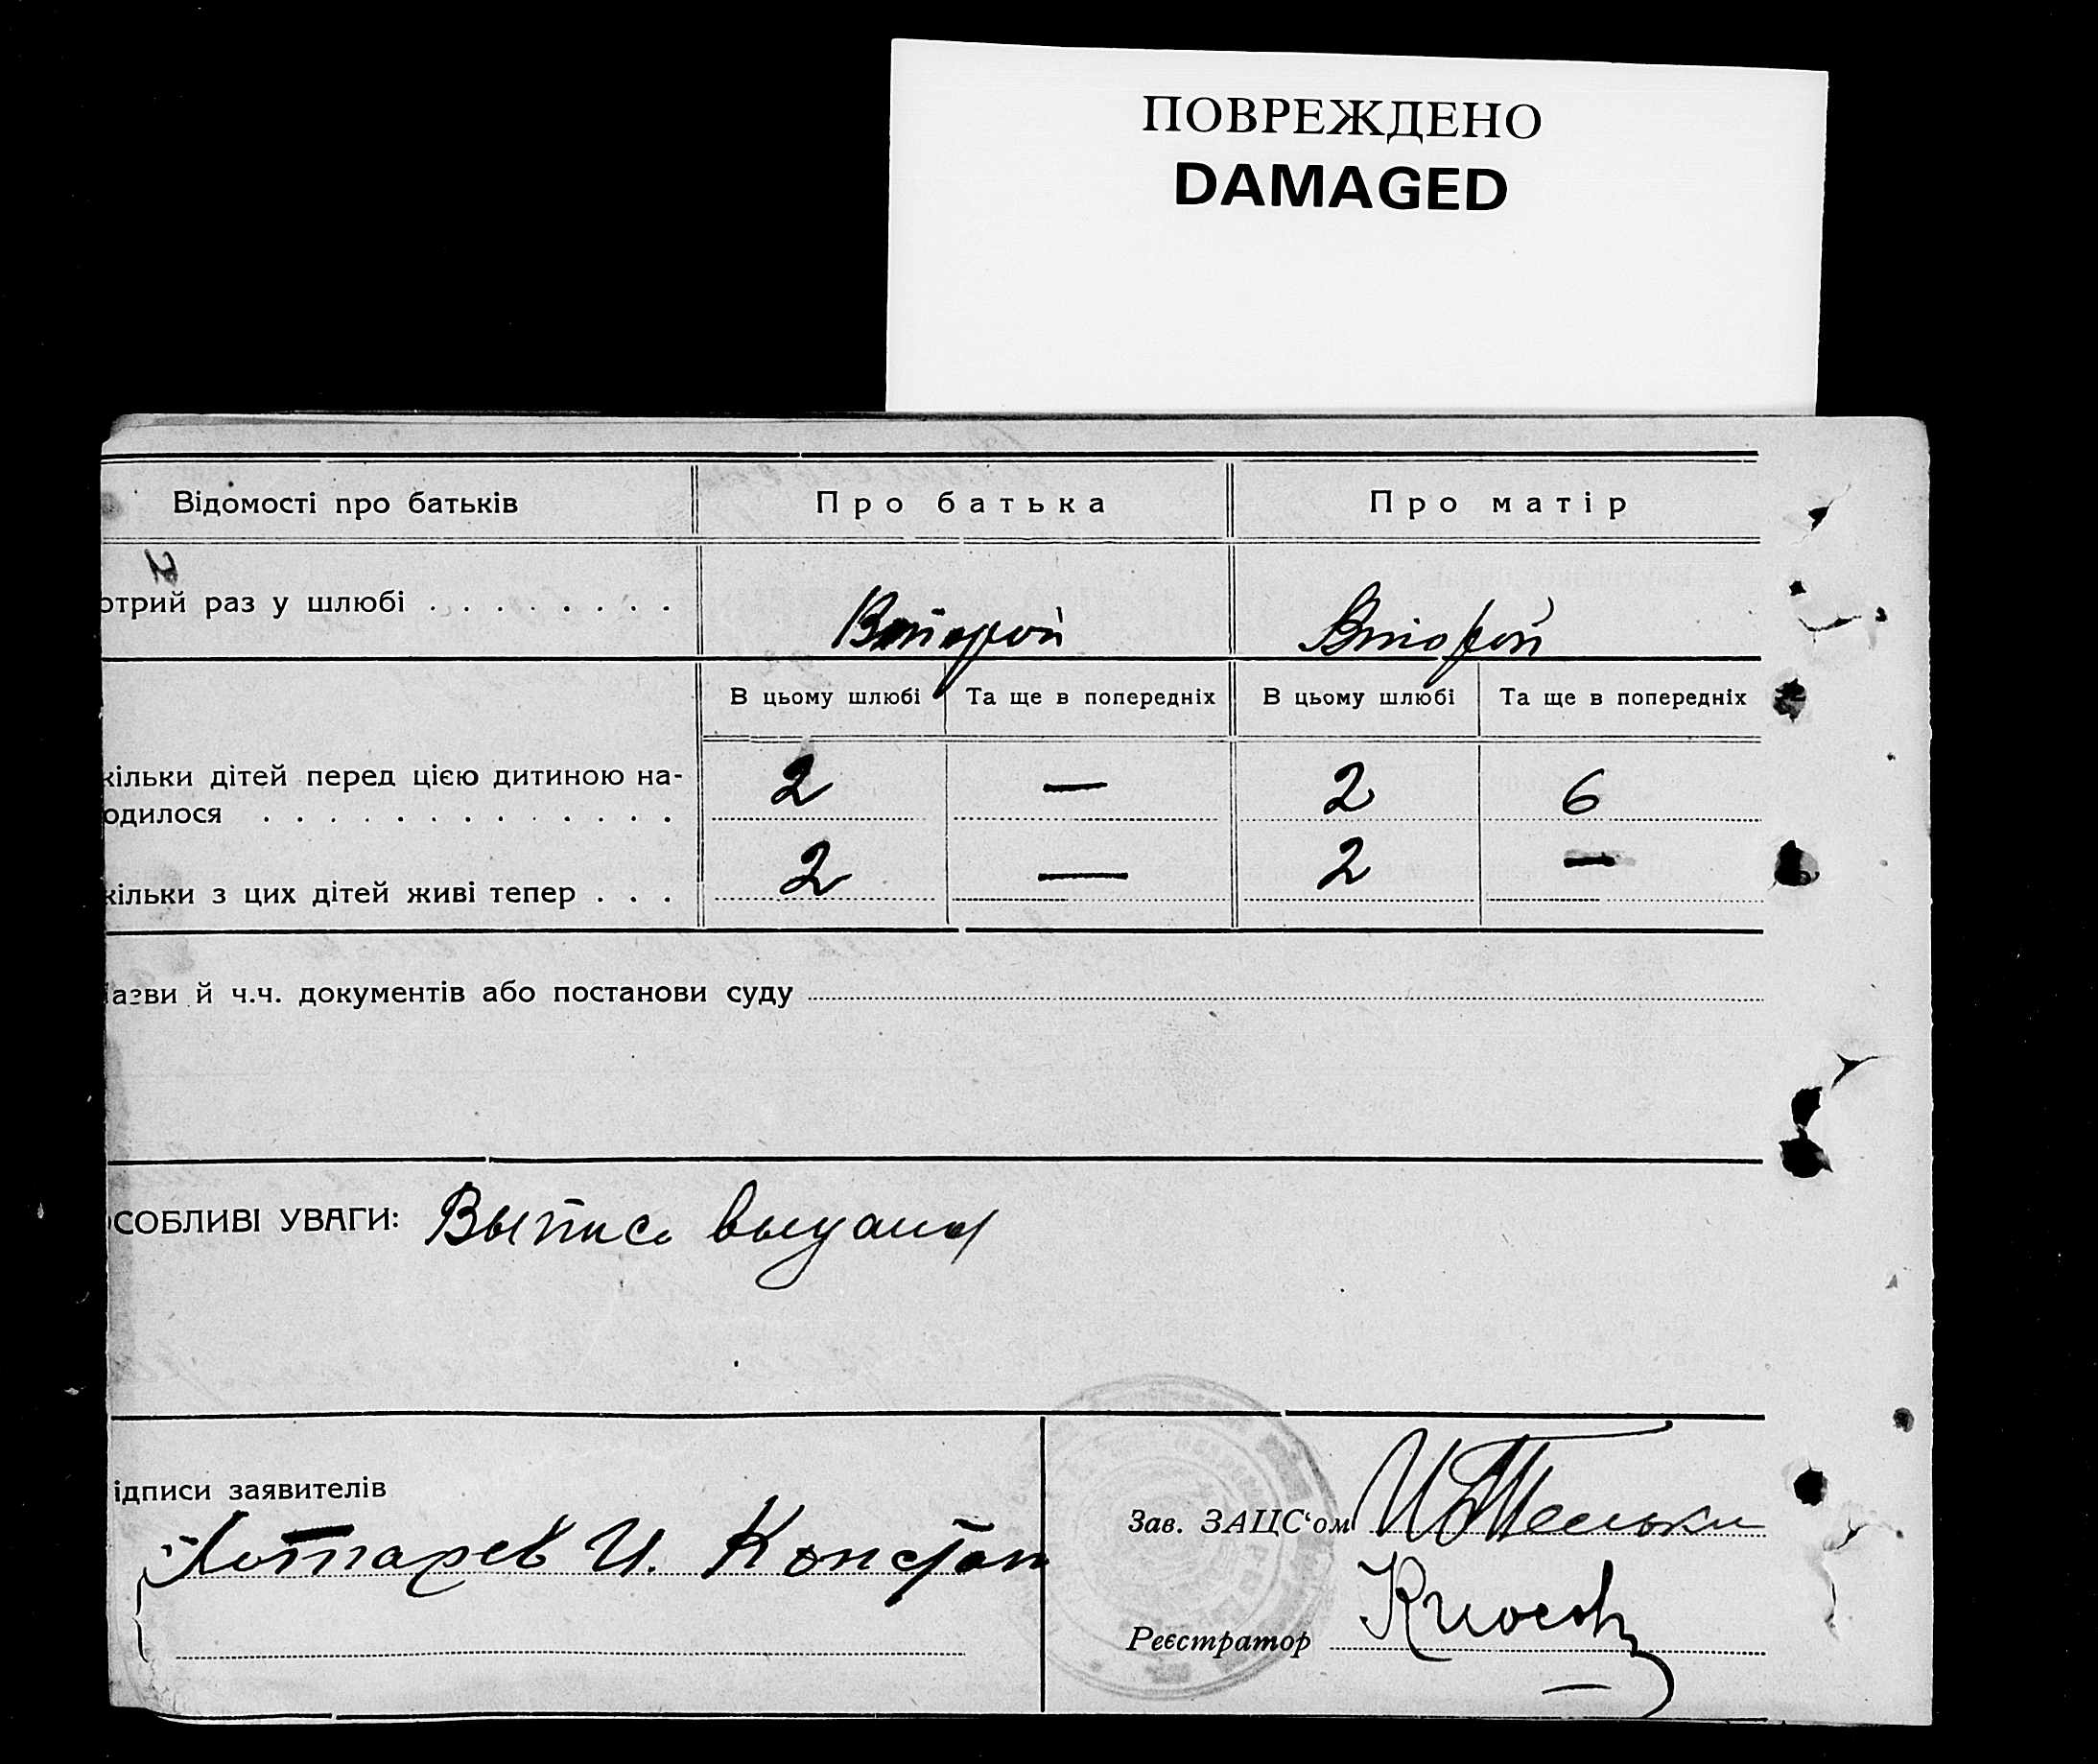 ПОВРЕЖДЕНО
DAMAGED
Відомості про батьків
Про батька
Про матір
отрий раз у шлюбі
Второй
Второй
В цьому шлюбі
Та ще в попередніх
В цьому шлюбі
Та ще в попередніх
кільки дітей перед цією дитиною на-
одилося
2 — 2 6
кільки з цих дітей живі тепер
2 — 2 —
азви й ч.ч. документів або постанови суду
СОБЛИВІ УВАГИ: Выпись выдана
ідписи заявителів
Зав. ЗАЦС‘ом
И. Констан
Реєстратор